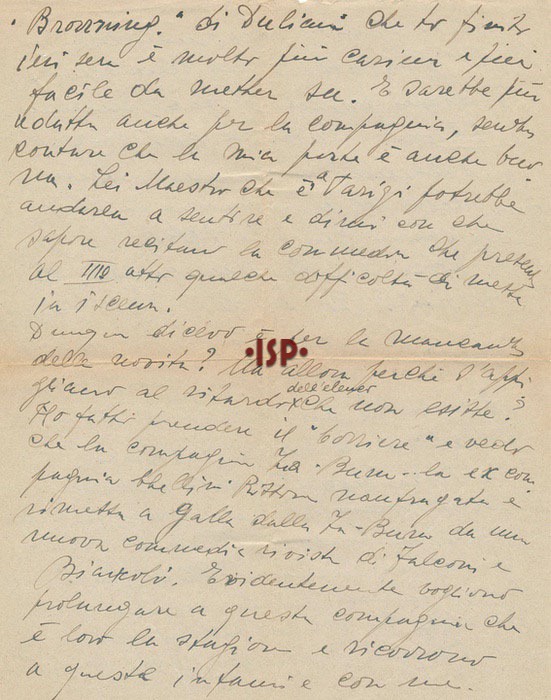 "Browning." di Duliani che ho finito
ieri sera è molto più carina e più
facile da metter su. E sarebbe più
adatta anche per la compagnia, senza
contare che la mia parte è anche buo
na. Lei Maestro che è a Parigi potrebbe
andarla a sentire e dirmi con che
sapore recitano la commedia che presenta
al III° atto qualche difficoltà di messa
in iscena.
Dunque dicevo è per la mancanza
della novità? Ma allora perché s'appi
gliano al ritardo dell'elenco che non esiste?
Ho fatto prendere il "Corriere" e vedo
che la compagnia Za-Bum - la ex com
pagnia naufragata è
rimessa a galla dalla Za-Bum da una
nuova commedia rivista di Falconi e
Biancoli. Evidentemente vogliono
prolungare a questa compagnia che
è loro la stagione e ricorrono
a queste infamie con me.
·ISP·